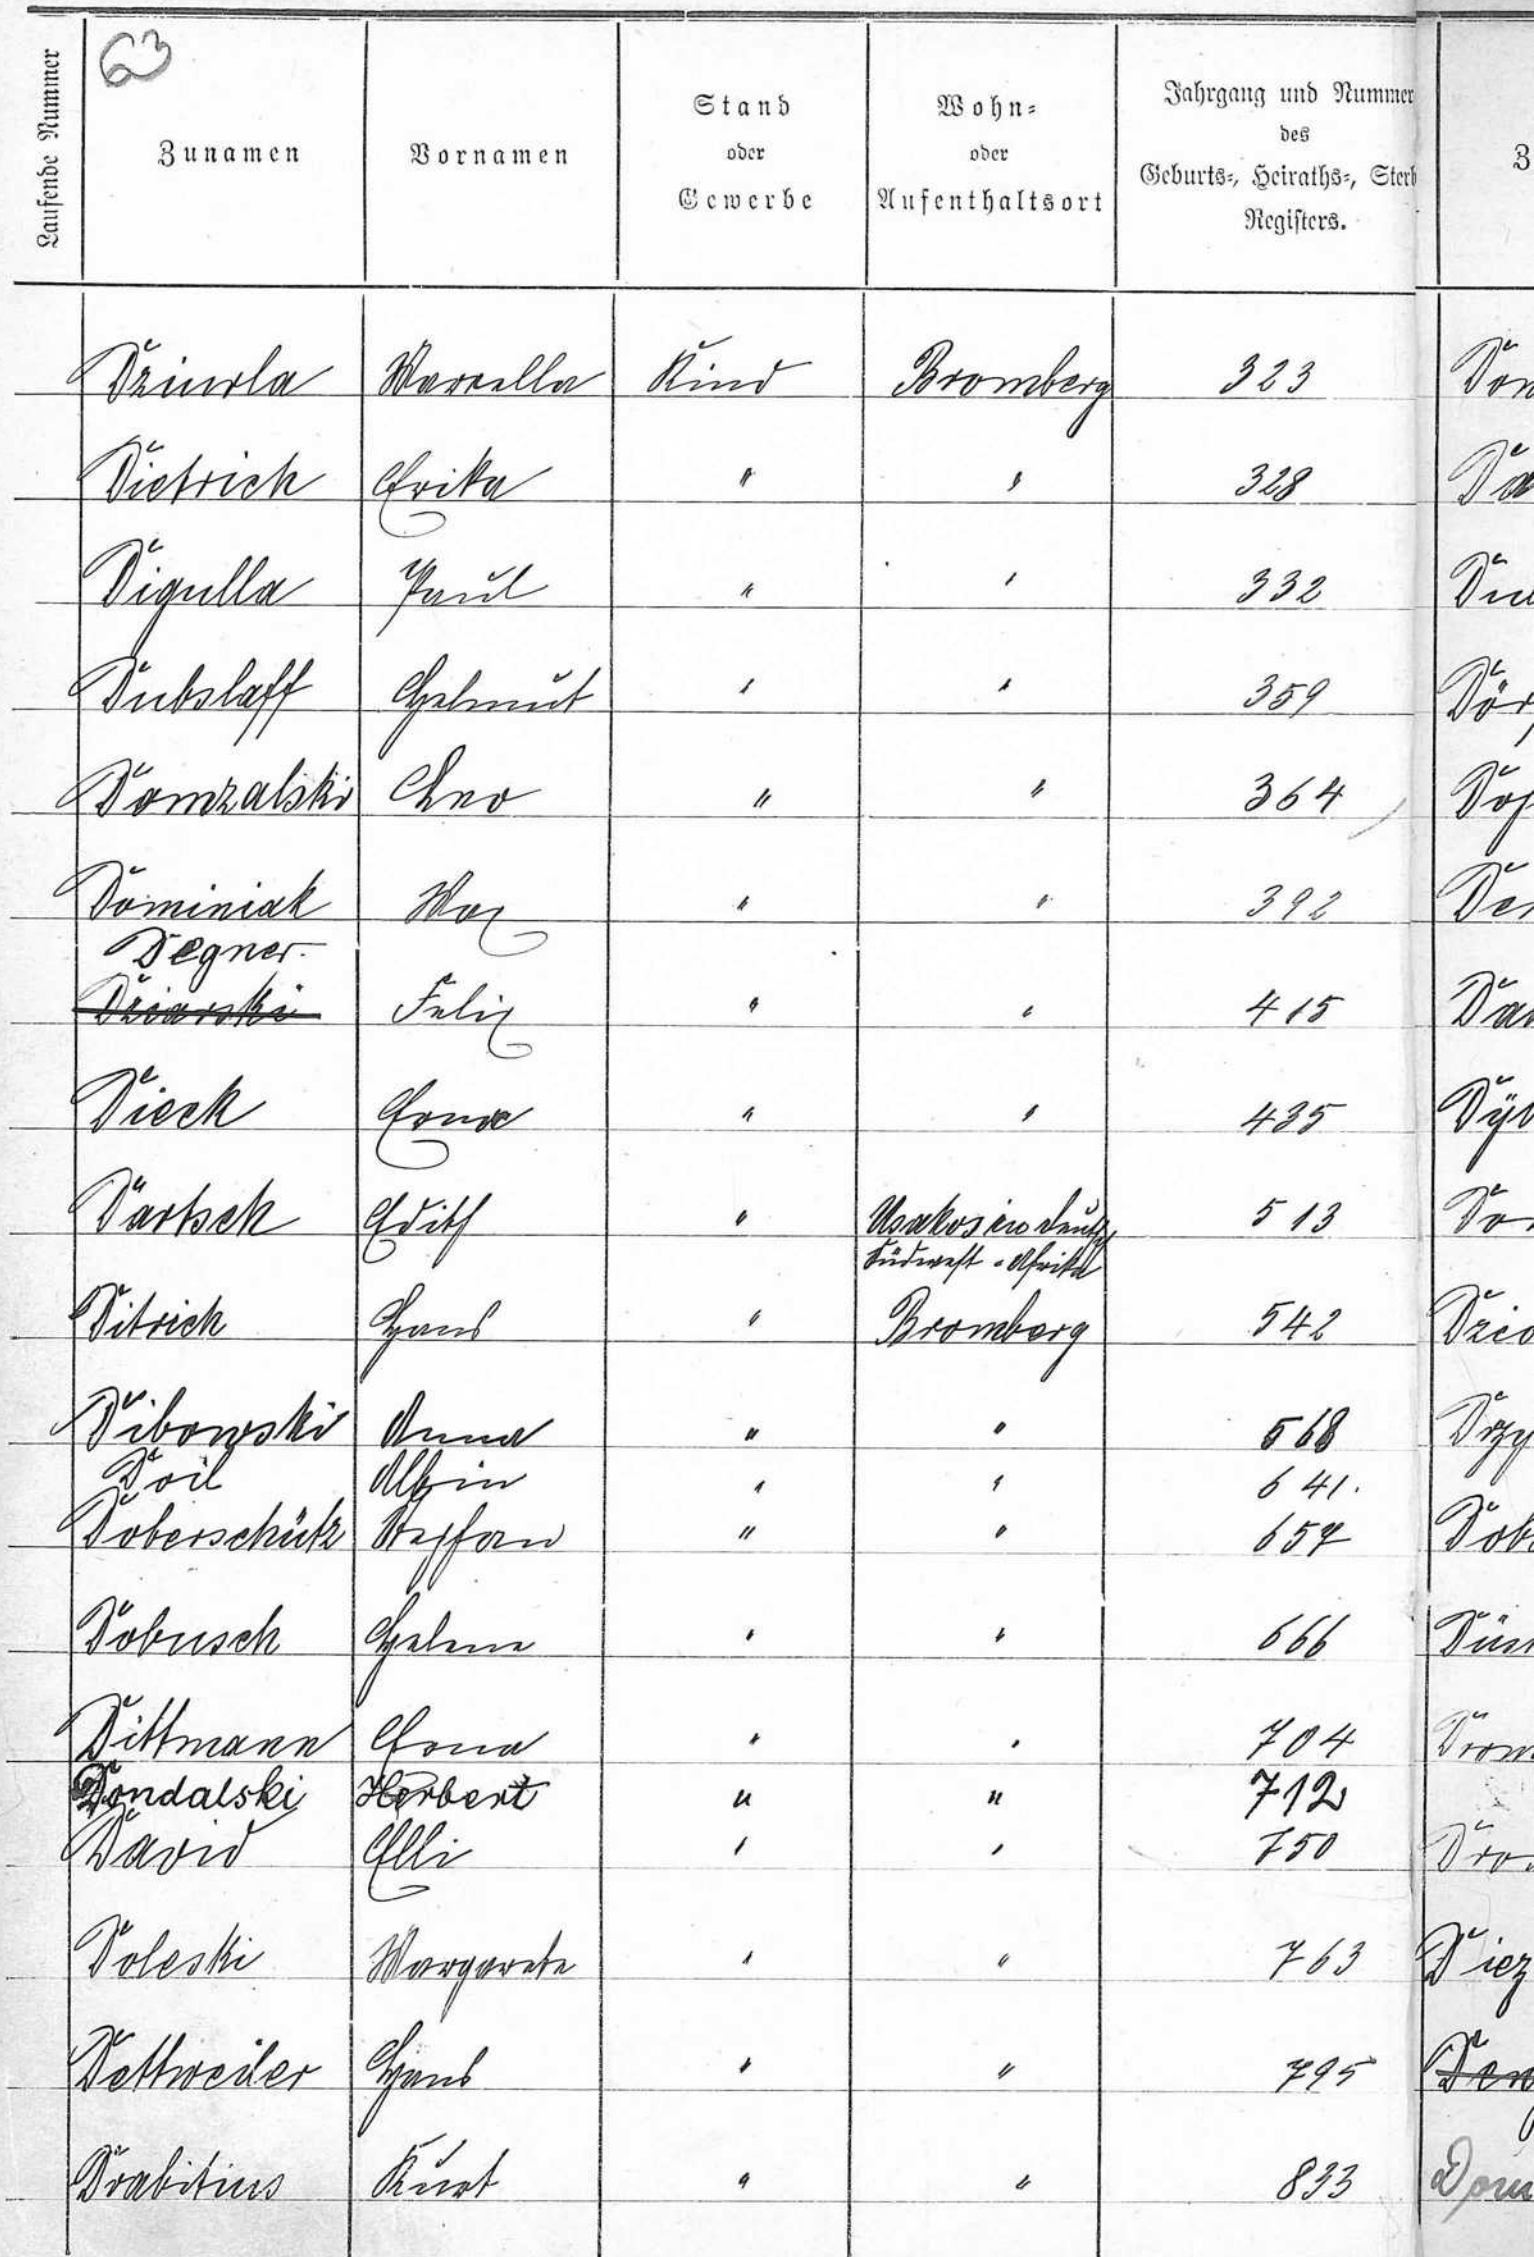 63
Laufende Nummer
Zunamen
Vornamen
Stand
oder
Gewerbe
Wohn=
oder
Aufenthaltsort
Jahrgang und Nummer
des
Geburts=, Heiraths=, Sterb
Registers.
Z
Kind Bromberg 323
Dietrich Erika " " 328
Digulla Paul " " 332
Dubslaff Helmut " " 359
Domzalski Leo " " 364
Dominiak Max " " 392
Degner
Dziarski Felix " " 415
Dieck Erna " " 435
Dartsch Edith " Usakos in deutsch 513
Südwest-Afrika
Ditrich Hans " Bromberg 542
Dibowski Anna " " 568
Doil Albin " " 641.
Doberschütz Stephan " " 657
Dobusch Helene " " 666
Dittmann Erna " " 704
Dondalski Herbert " " 712
David Elli " " 750
Doleski Margarete " " 763
Dettweiler Hans " " 795
Drabitius Kurt " " 833